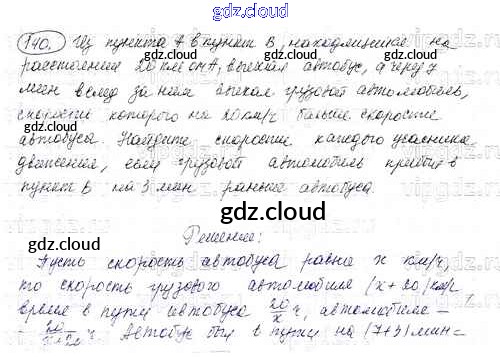 gdz.cloud
140. Из пункта А в пункт В, находящийся на
расстоянии 20 км от А, выехал автобус, а через 7
мин вслед за ним выехал грузовой автомобиль,
скорость которого на 20 км/ч больше скорости
gdz.cloud gdz.cloud
автобуса. Найдите скорости каждого участника
движения, если грузовой автомобиль прибыл в
пункт В на 3 мин раньше автобуса.
gdz.cloud
Решение:
Пусть скорость автобуса равна x км/ч,
то скорость грузового автомобиля (x+20) км/ч
gdz.cloud gdz.cloud
время в пути автобуса 20/x ч, автомобиля –
- 20/x+20 ч. Автобус был в пути на (7+3) мин=
gdz.cloud